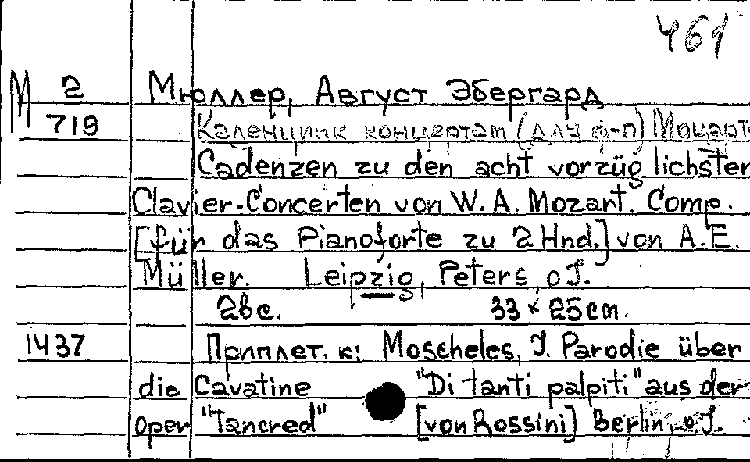 461
М 2 Мюллер, Август Эбергард
719 Каденции к концертам (для ф-п) Моцарт
Cadenzen zu den acht vorzüglichsten
Clavier-Concerten von W. A. Mozart. Comp.
[für das Pianoforte zu 2 Hnd.] von A. E.
Müller. Leipzig, Peters, o J.
26c. 33 x 25cm.
1437 Приплет. к: Moscheles, J. Parodie über
die Cavatine "Di tanti palpiti" aus der
oper "Tancred" [von Rossini] Berlin, o. J.